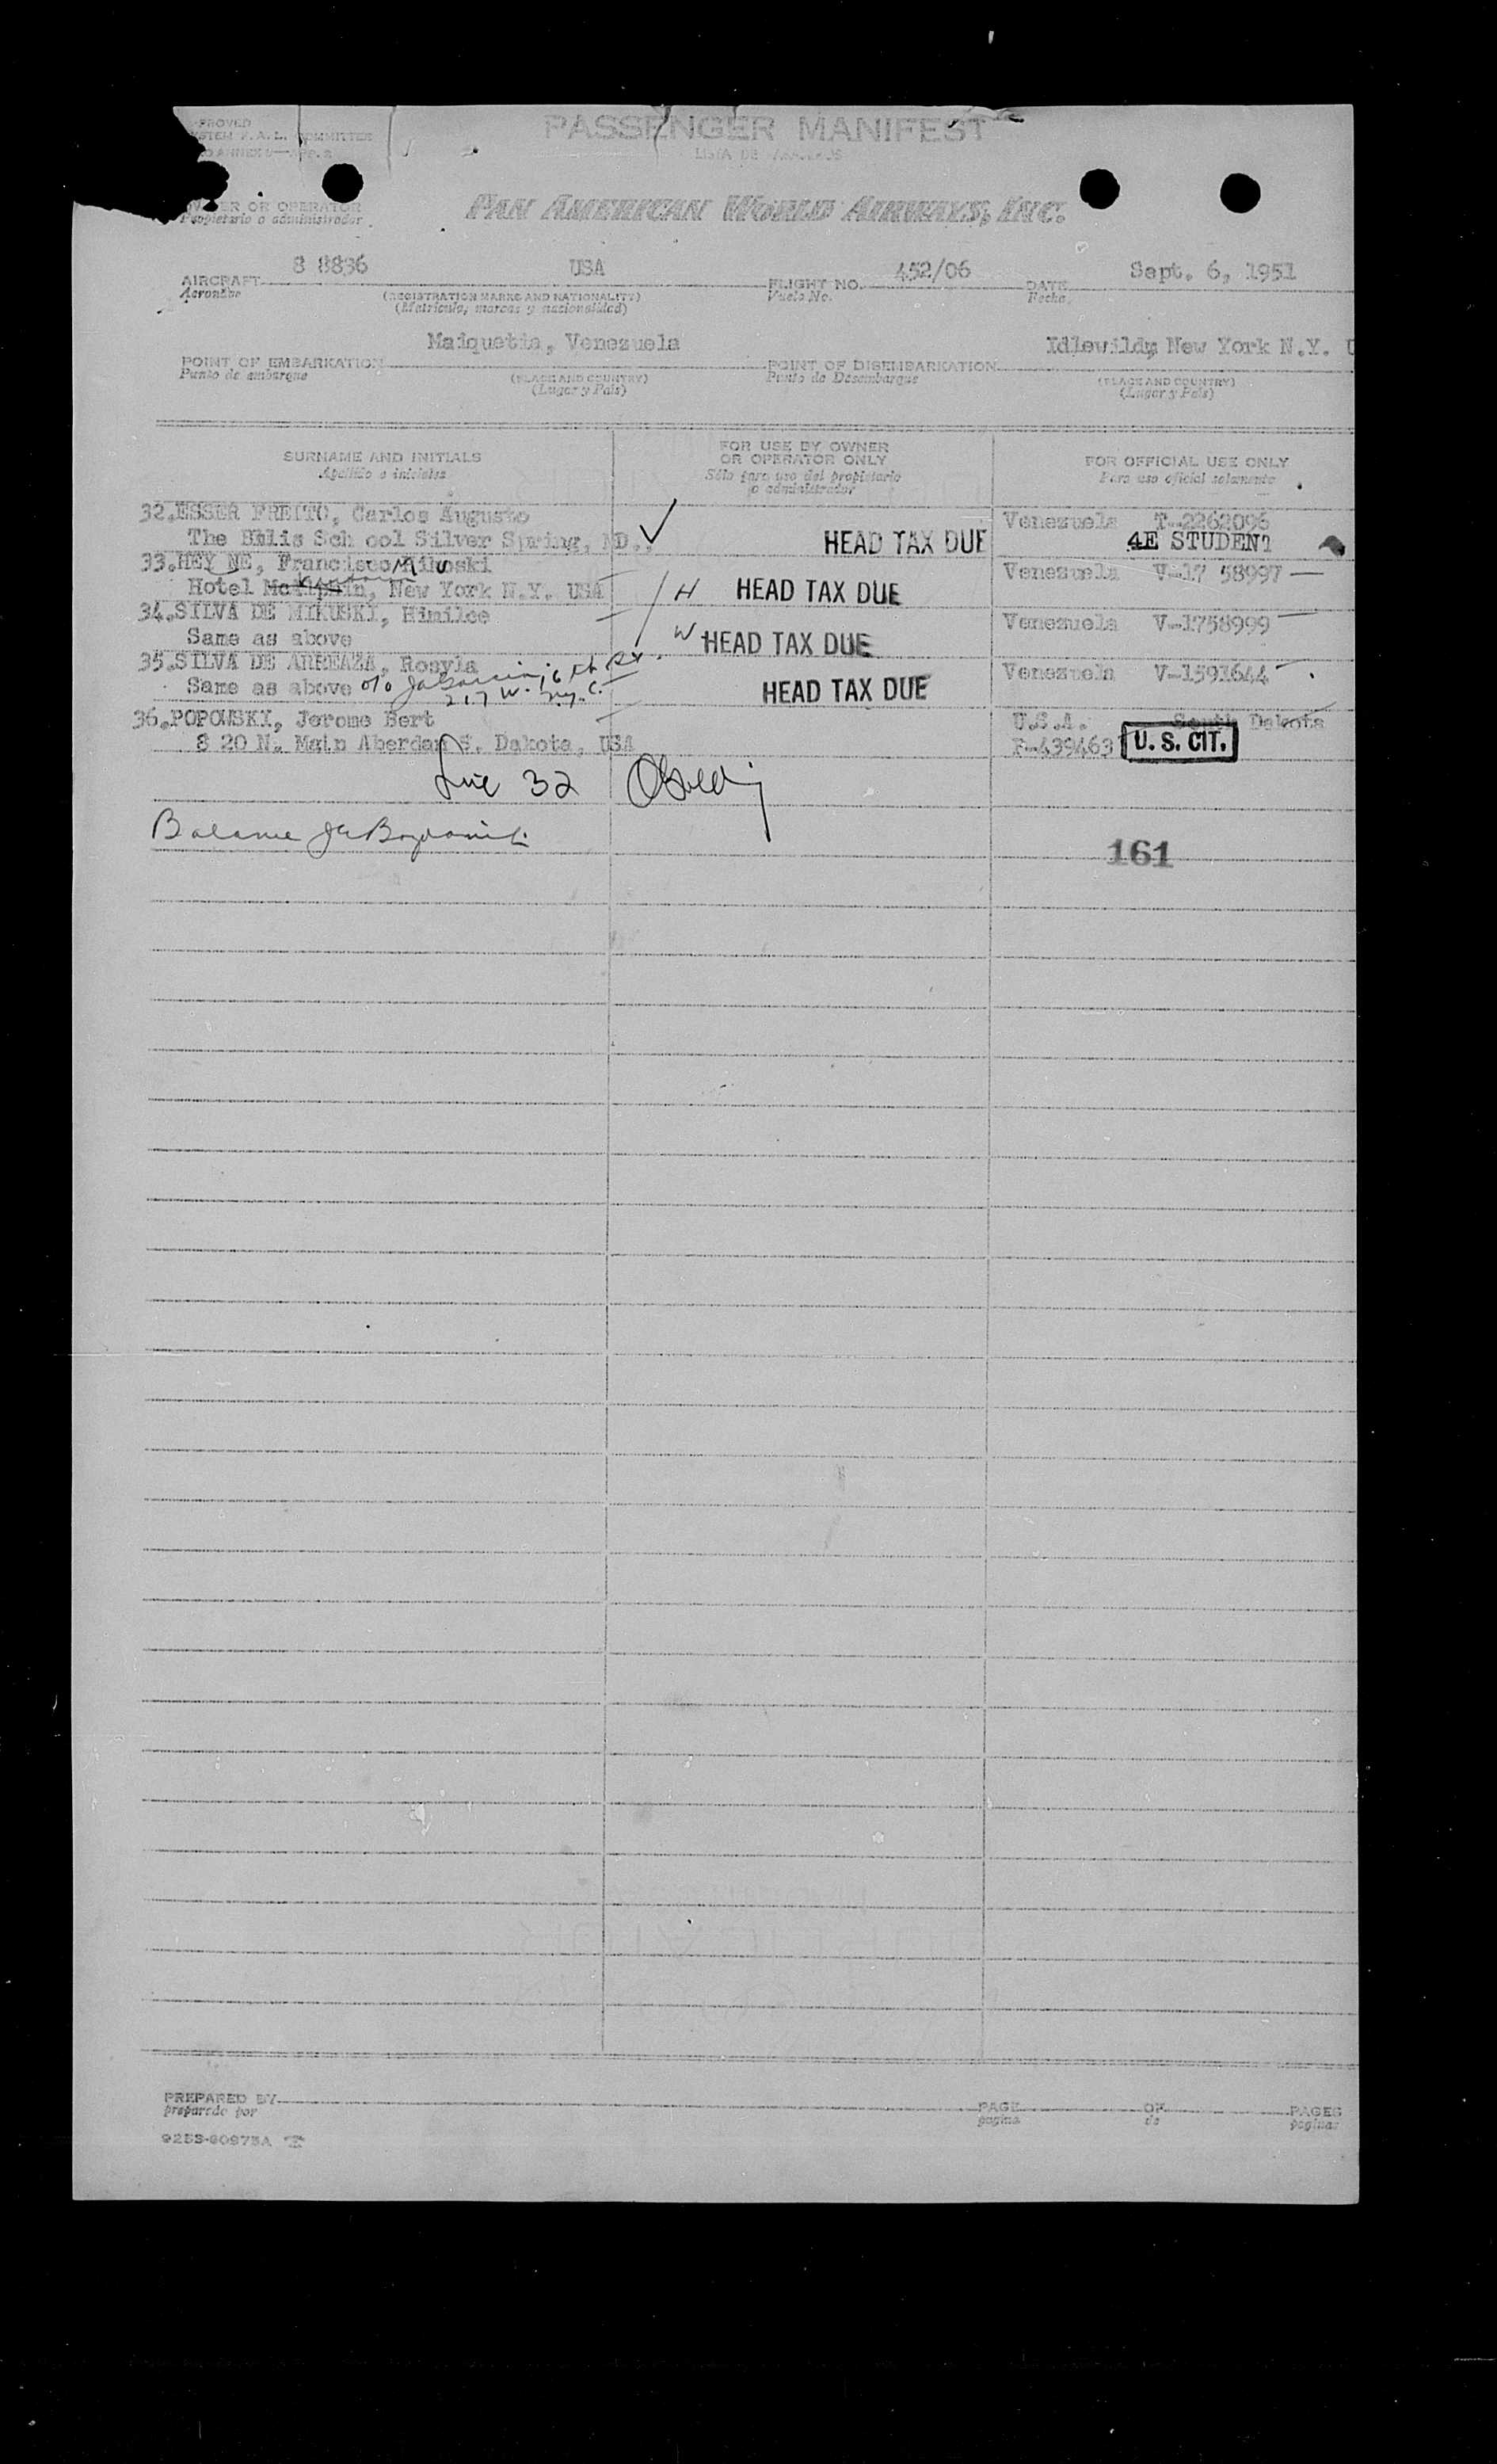 PASSENGER MANIFEST
LISTA DE
OR OPERATOR
Propietario o administrador
PAN AMERICAN WORLD AIRWAYS, INC.
AIRCRAFT 8 8836 USA FLIGHT NO. 452/06 DATE Sept. 6, 1951
Aeronave (REGISTRATION MARKS AND NATIONALITY) Vuelo No. Fecha
(Matricula, marcas y nacionalidad)
POINT OF EMBARKATION Maiquetia, Venezuela POINT OF DISEMBARKATION Idlewild, New York N.Y. U
Punto de embarque (PLACE AND COUNTRY) Punto de Desembarque (PLACE AND COUNTRY)
(Lugar y Pais) (Lugar y Pais)
SURNAME AND INITIALS FOR USE BY OWNER OR OPERATOR ONLY FOR OFFICIAL USE ONLY
Apellido e iniciales Sólo para uso del propietario o administrador Para uso oficial solamente
32. ESSER FREITO, Carlos Augusto Venezuela T-2262096
The Bullis Sch ool Silver Spring, MD., HEAD TAX DUE 4E STUDENT
33. HEY NE, Francisco Venezuela V-17 58997
Hotel New York N.Y. USA H HEAD TAX DUE
34. SILVA DE MIKUSKI, Himilce Venezuela V-1758999
Same as above W HEAD TAX DUE
35. SILVA DE ARREAZA, Rosyla Venezuela V-1591644
Same as above c/o 217 W. HEAD TAX DUE
36. POPOWSKI, Jerome Bert U.S.A. South Dakota
8 20 N. Main Aberdan S. Dakota, USA F-439463 U. S. CIT.
Line 32
Balance
161
PREPARED BY PAGE OF PAGES
preparado por pagina de paginas
9253-60973A